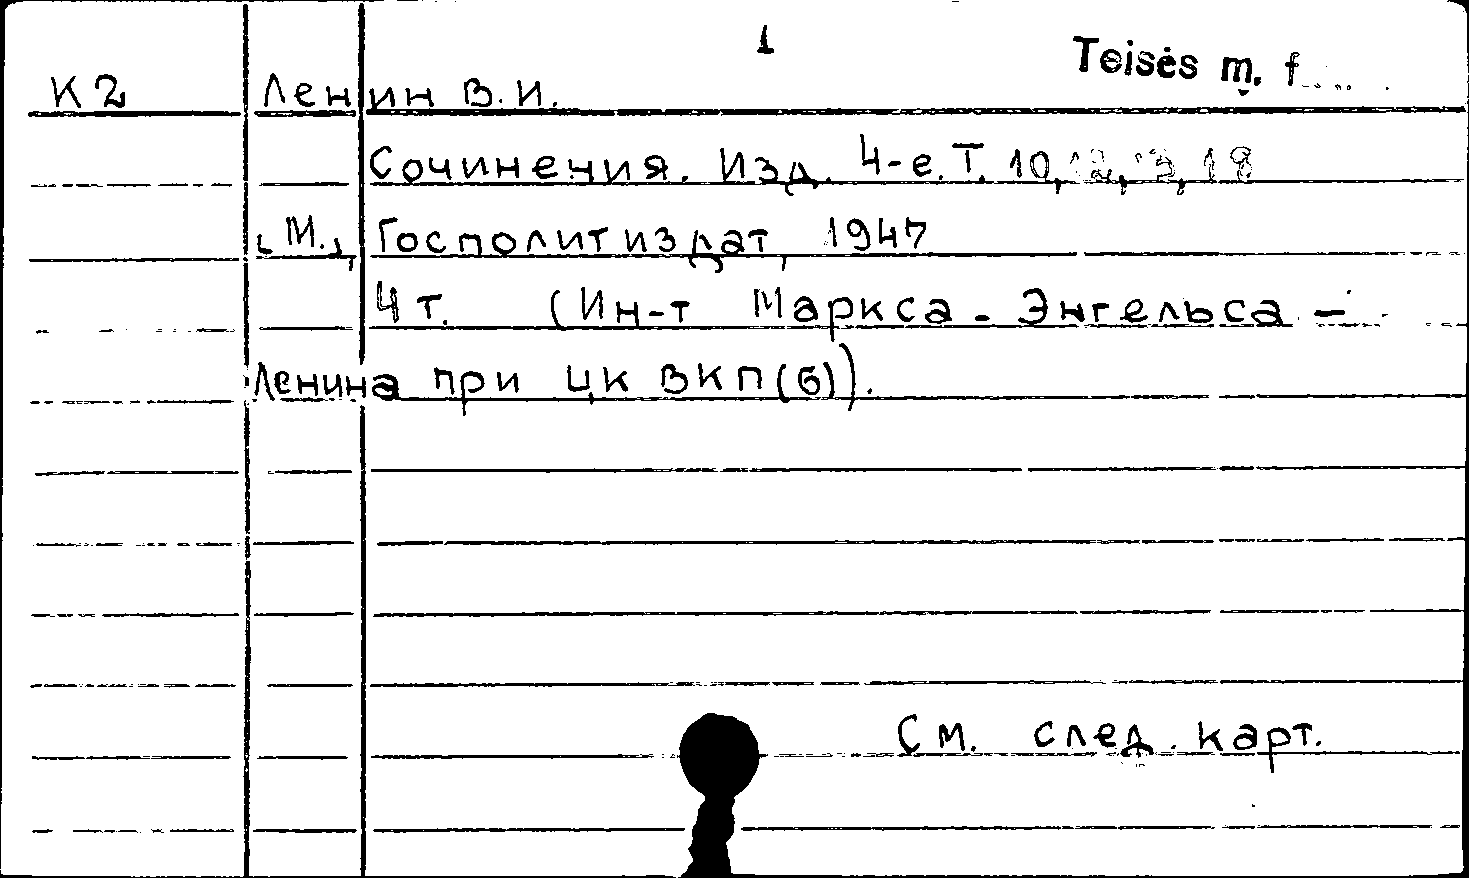 1
Teisės m. f.
К2 Ленин В.И.
Сочинения. Изд. 4-е. Т. 10, 12, 13, 18
[М.], Госполитиздат, 1947
4 т. (Ин-т Маркса - Энгельса -
Ленина при ЦК ВКП(б)).
См. след. карт.